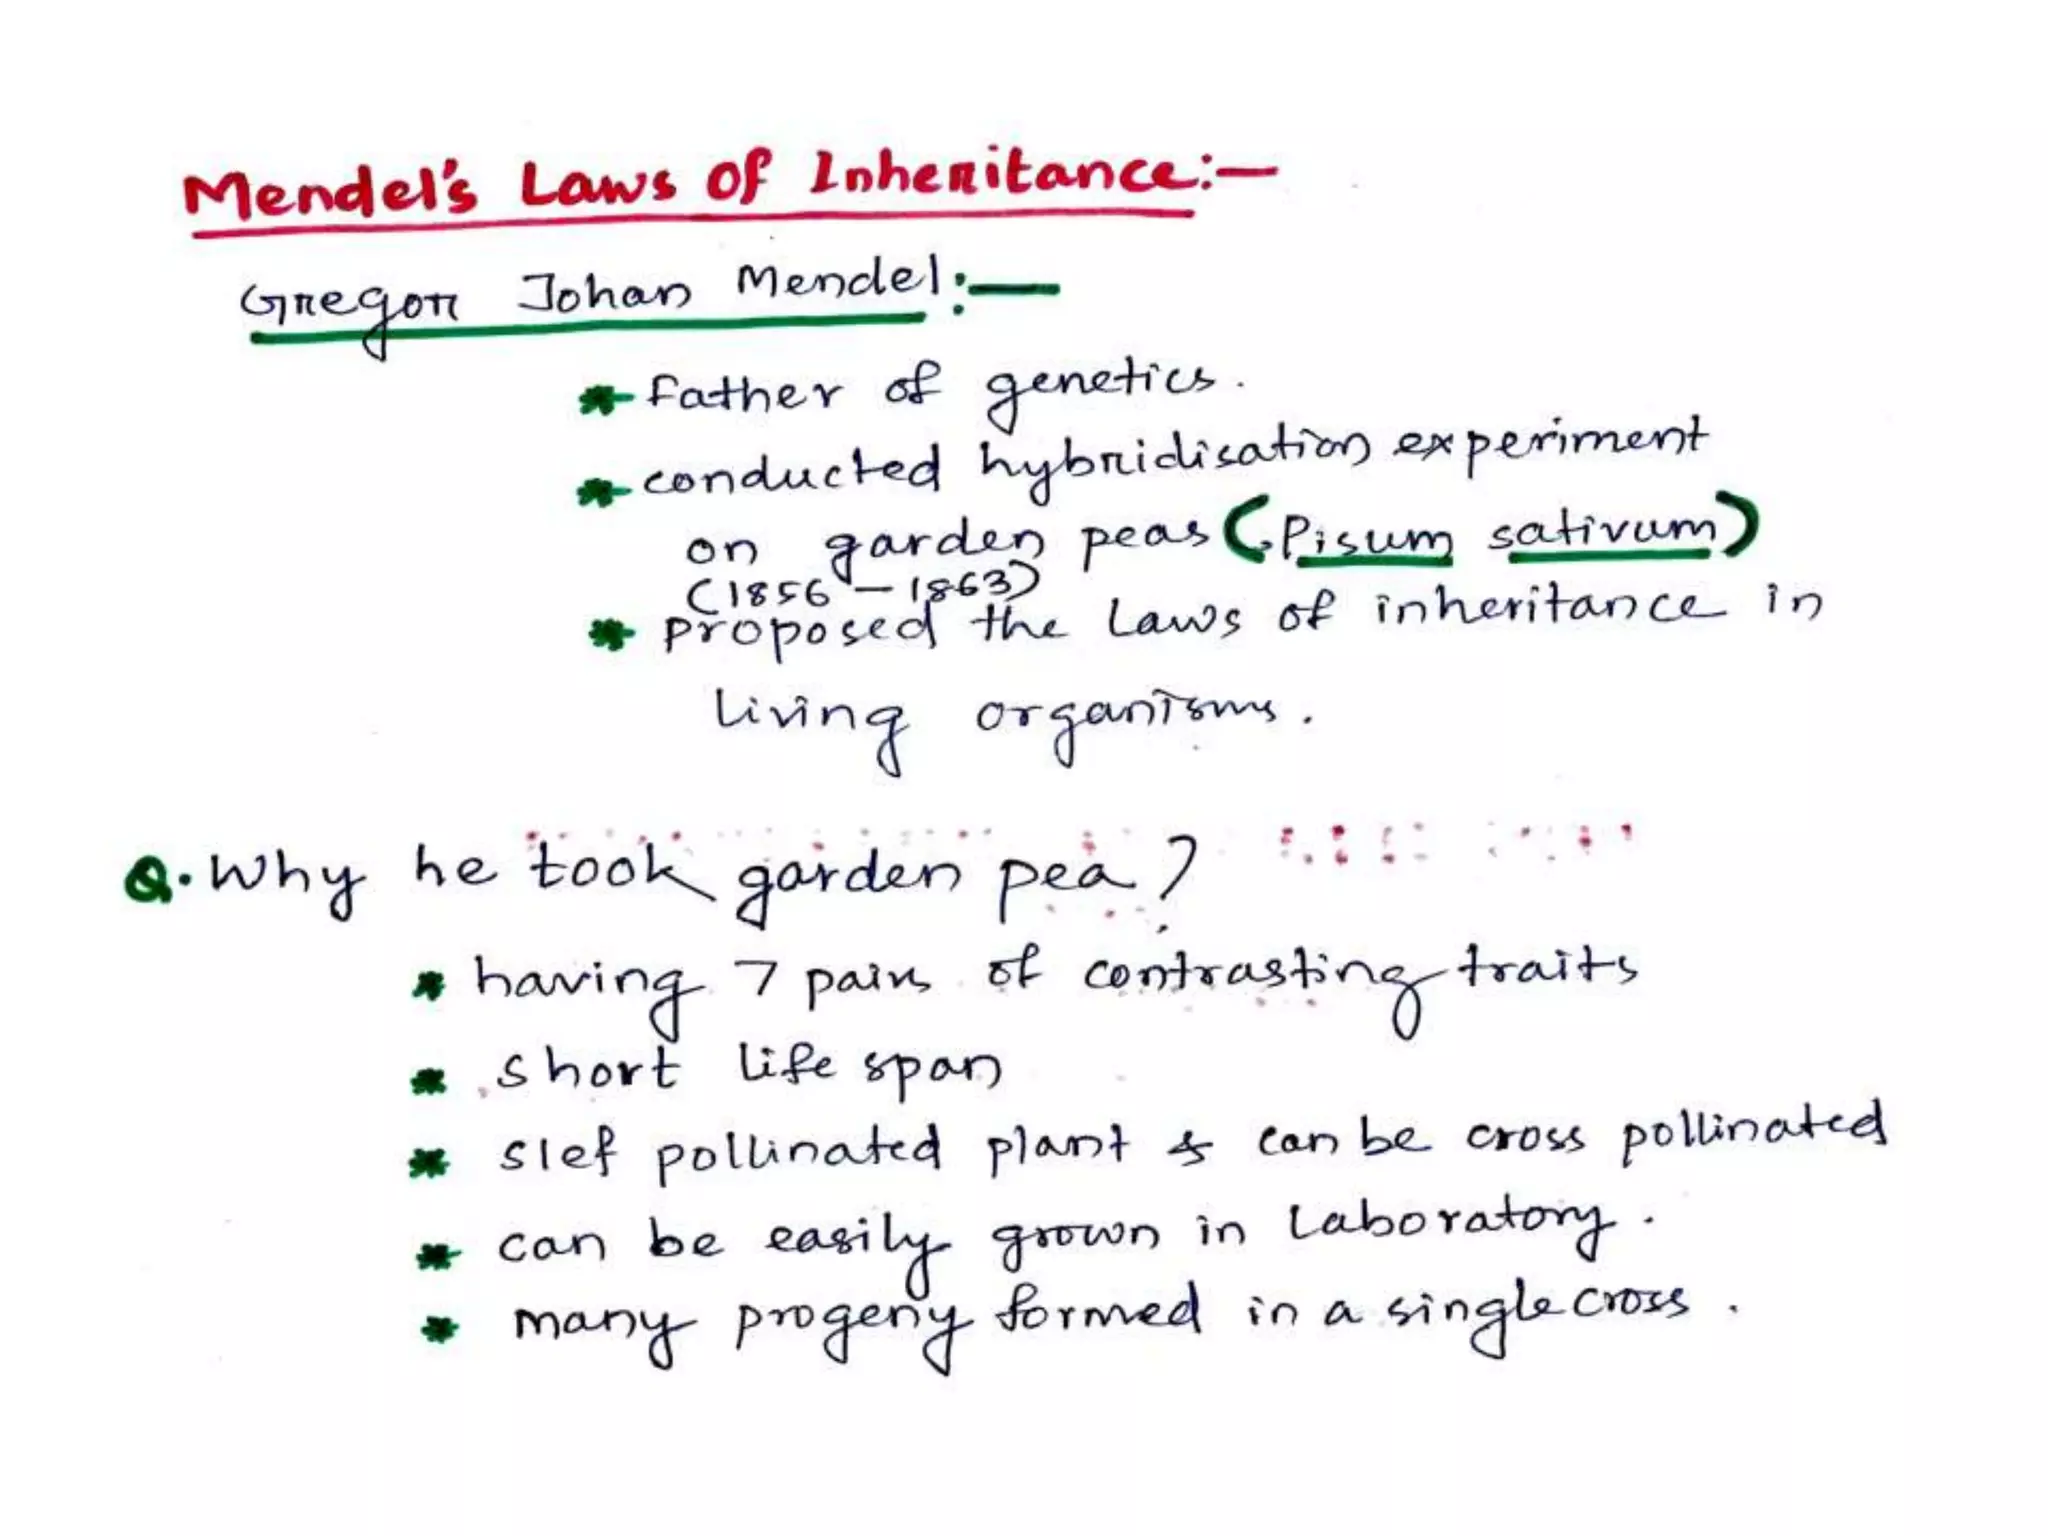 Mendel's Laws of Inheritance:-
Gregor Johan Mendel:-
* Father of genetics.
* conducted hybridisation experiment
on garden peas (Pisum sativum)
(1856 - 1863)
* proposed the Laws of inheritance in
living organisms.
Q. Why he took garden pea?
* having 7 pairs of contrasting traits
* short life span
* slef pollinated plant & can be cross pollinated
* can be easily grown in Laboratory.
* many progeny formed in a single cross.